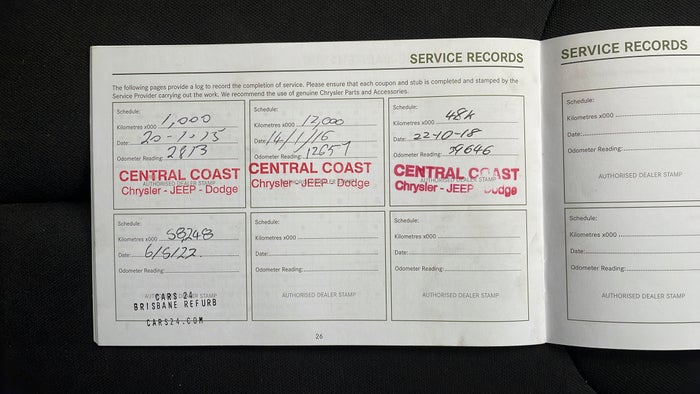 SERVICE RECORDS
The following pages provide a log to record the completion of service. Please ensure that each coupon and stub is completed and stamped by the
Service Provider carrying out the work. We recommend the use of genuine Chrysler Parts and Accessories.
Schedule:
Kilometres x000 1,000
Date: 20-1-15
Odometer Reading: 2913
CENTRAL COAST
AUTHORISED DEALER STAMP
Chrysler - JEEP - Dodge
Schedule:
Kilometres x000 12,000
Date: 14/1/16
Odometer Reading: 12657
CENTRAL COAST
AUTHORISED DEALER STAMP
Chrysler - JEEP - Dodge
Schedule:
Kilometres x000 48K
Date: 22-10-18
Odometer Reading: 39646
CENTRAL COAST
AUTHORISED DEALER STAMP
Chrysler - JEEP - Dodge
Schedule:
Kilometres x000 58248
Date: 6/5/22
Odometer Reading:
AUTHORISED DEALER STAMP
CARS 24
BRISBANE REFURB
CARS24.COM
Schedule:
Kilometres x000
Date:
Odometer Reading:
AUTHORISED DEALER STAMP
Schedule:
Kilometres x000
Date:
Odometer Reading:
AUTHORISED DEALER STAMP
26
SERVICE RECORDS
Schedule:
Kilometres x000
Date:
Odometer Reading:
AUTHORISED DEALER STAMP
Schedule:
Kilometres x000
Date:
Odometer Reading:
AUTHORISED DEALER STAMP